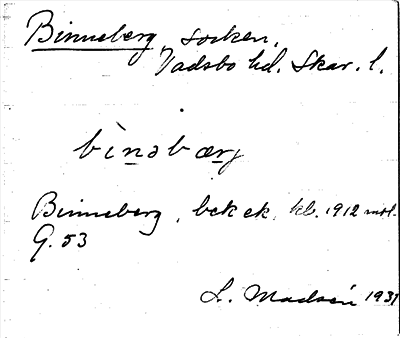 Binneberg, socken,
Vadsbo hd. Skar. l.
bìnəbærj
Binneberg, bek ek, kb. 1912 mtl.
G. 53
L. Madsén 1931